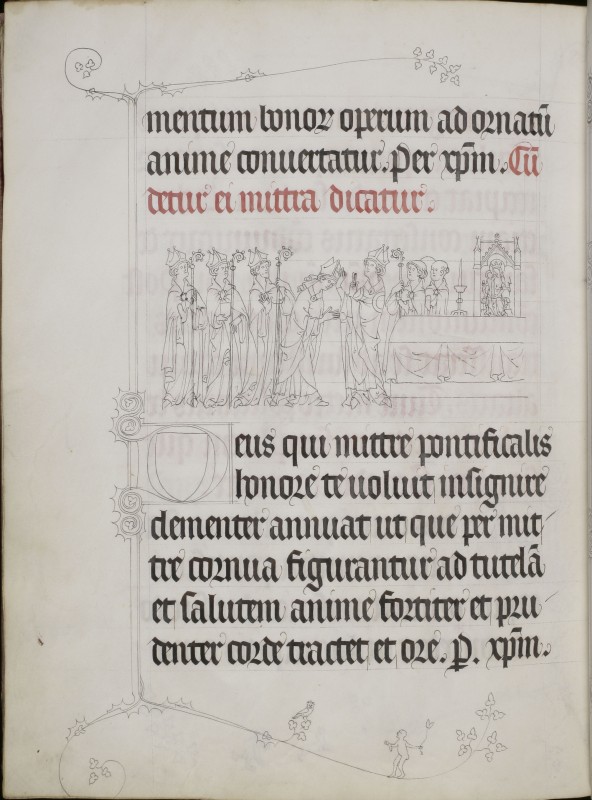 mentum bonoꝝ operum ad ornatū
anime conuertatur. Per xp̄m. Cū
detur ei mittra dicatur.
Deus qui mittre pontificalis
honore te uoluit insignire
clementer annuat ut que per mit
tre cornua figurantur ad tutelā
et salutem anime fortiter et pru
denter corde tractet et ore. P. xp̄m.